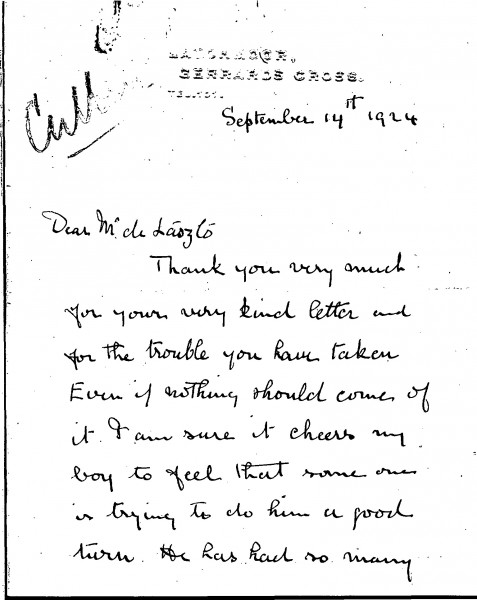 GERRARDS CROSS.
September 14th 1924
Dear Mr. de László
Thank you very much
for your very kind letter and
for the trouble you have taken
Even if nothing should come of
it I am sure it cheers my
boy to feel that some one
is trying to do him a good
turn. He has had so many